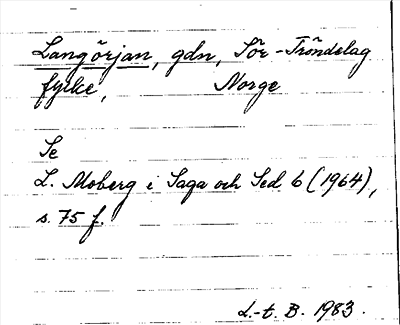 Langörjan, gdn, Sör-Tröndelag
fylke, Norge
Se
L. Moberg i Saga och Sed 6 (1964),
s. 75 f.
L.-t. B. 1983.